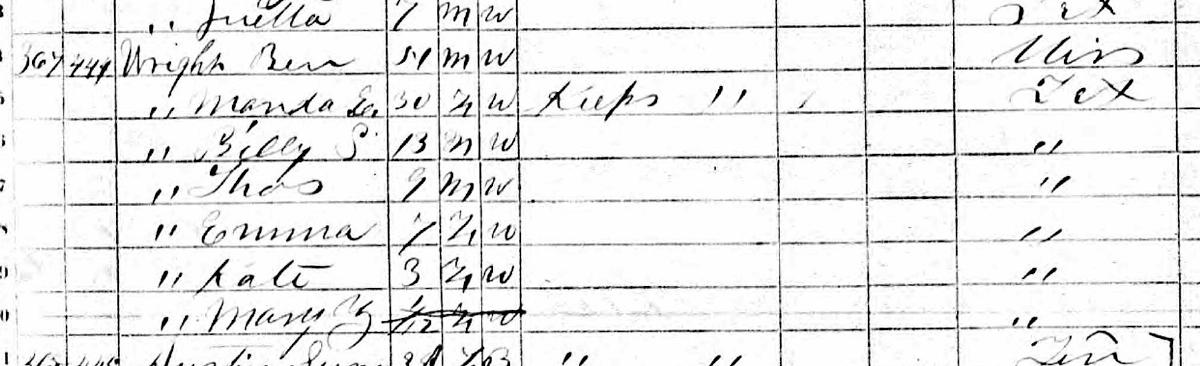 " Juetta 7 m W Tex
367 444 Wright Ben 51 m W Miss
" Manda 30 F W Keeps " Tex
" Billy S 13 m W "
" Thos 9 m W "
" Emma 7 F W "
" Kate 3 F W "
" Mary F 1/12 F W "
B " " Ten